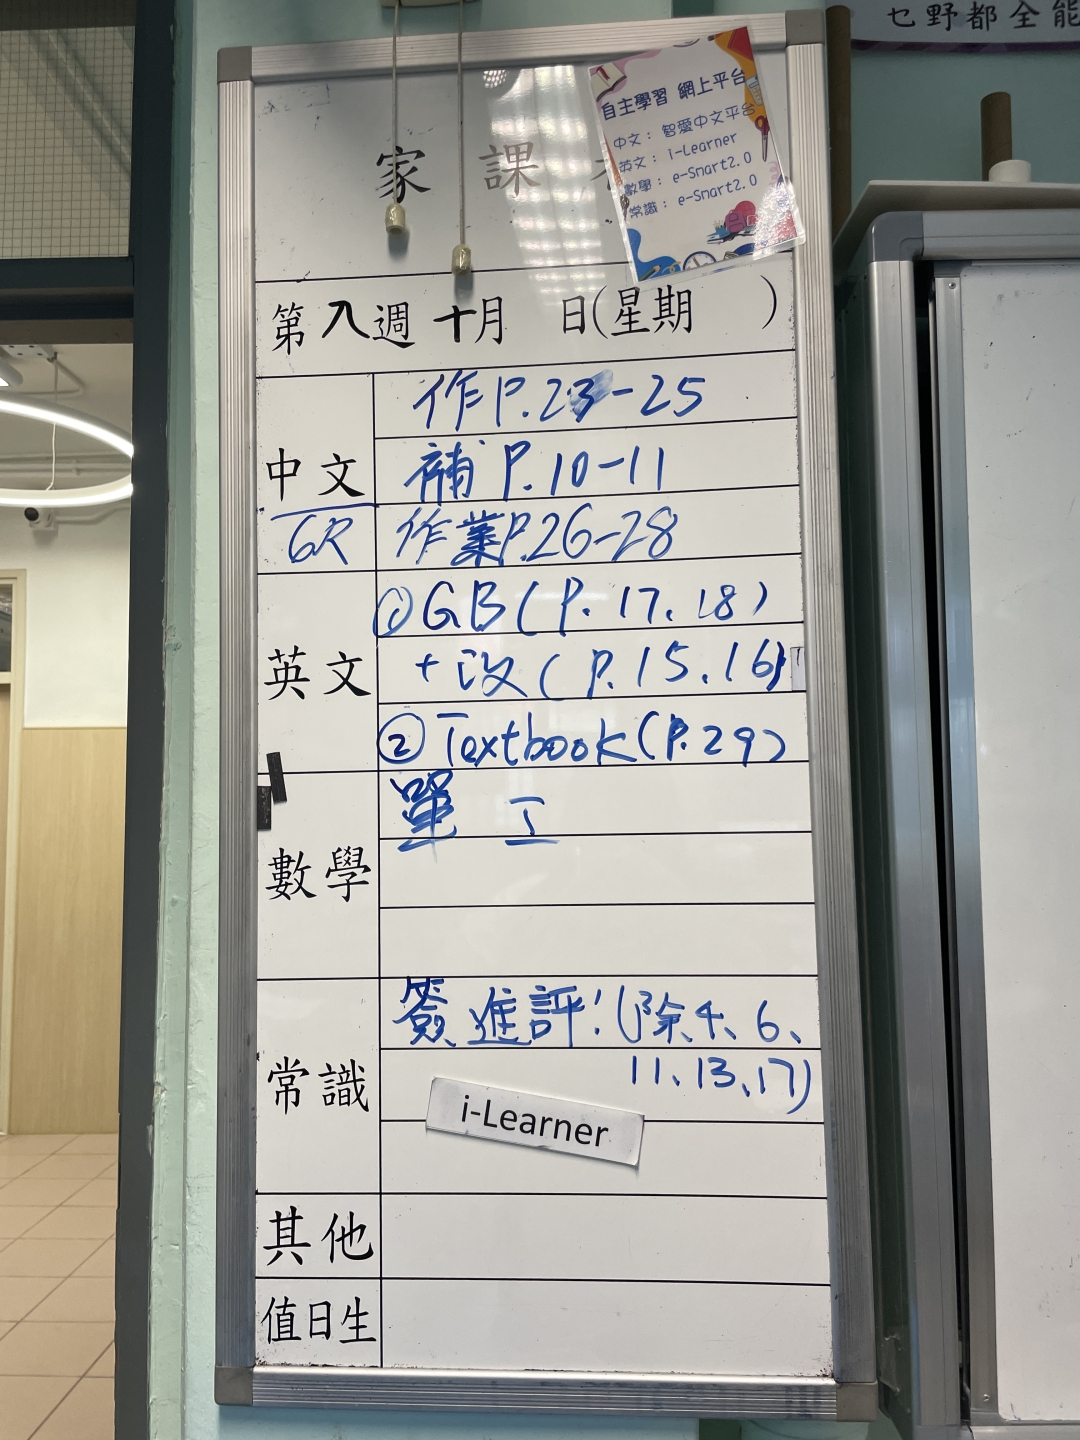 乜野都全能
自主學習 網上平台
中文： 智愛中文平台
英文： i-Learner
數學： e-Smart2.0
常識： e-Smart2.0
家 課
第八週 十月 日(星期 )
中文
作P.23-25
補P.10-11
GR
作業P.26-28
英文
①GB(P.17.18)
+改(P.15.16)
②Textbook(P.29)
數學
單 工
常識
簽進評!(除4、6、
11、13、17)
i-Learner
其他
值日生